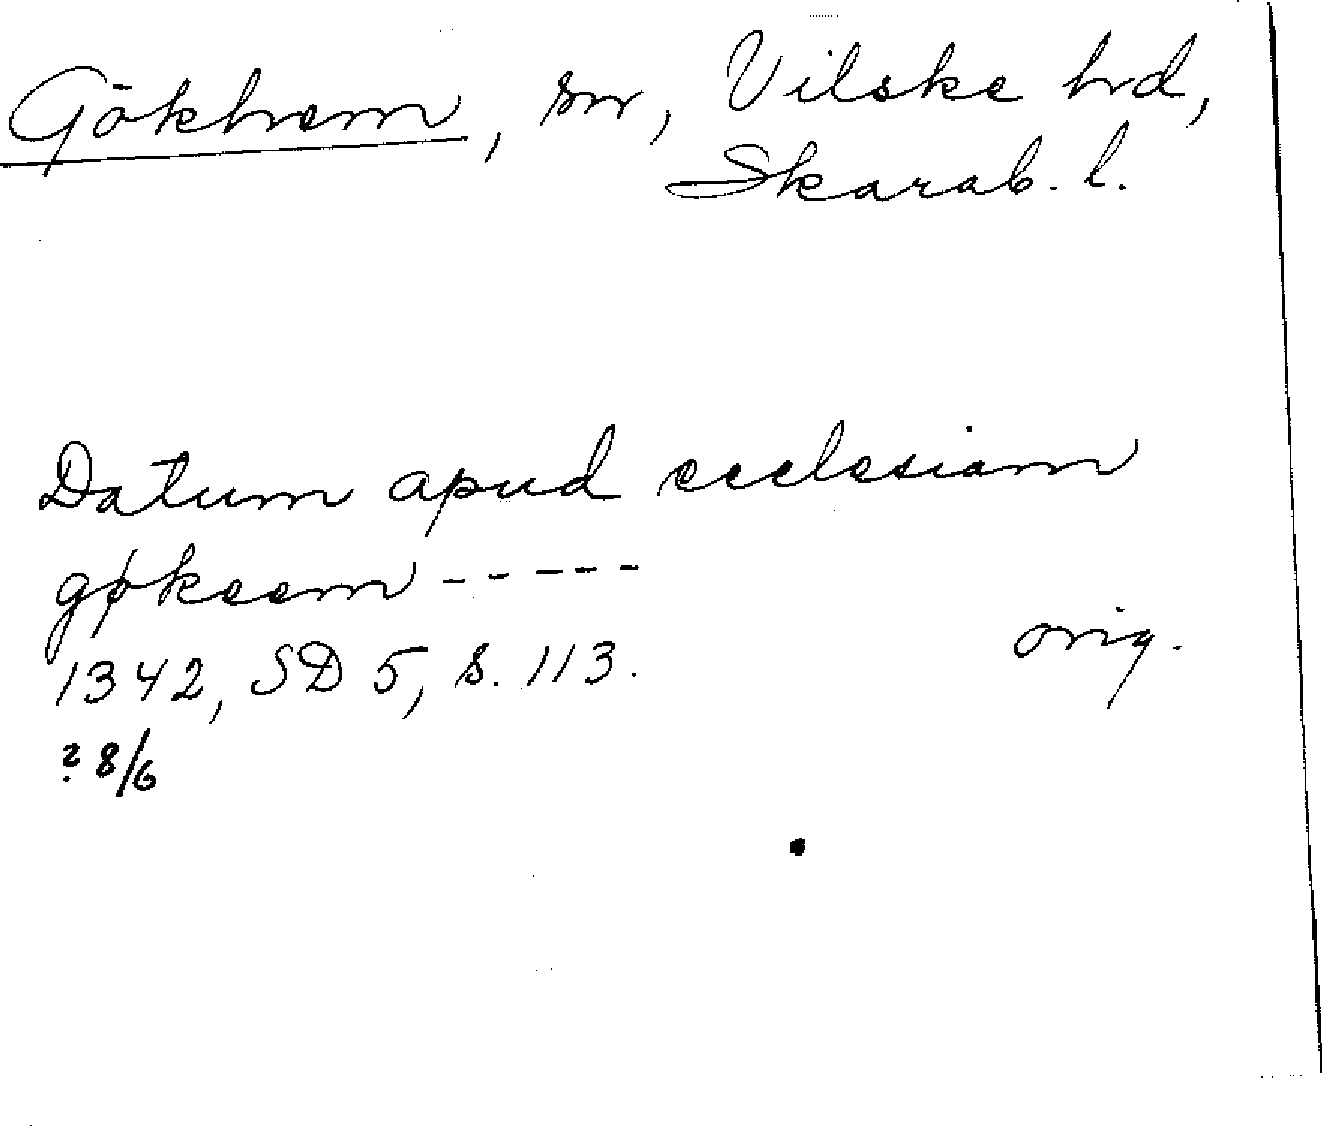 Gökhem, sn, Vilske hd,
Skarab. l.
Datum apud ecclesiam
gøkeem -----
orig.
1342, SD 5, s. 113.
? 8/6